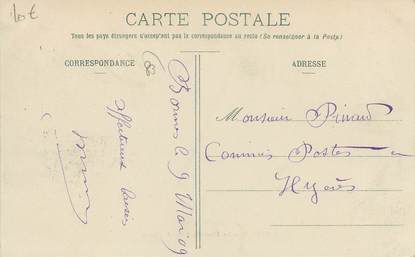 10€
CARTE POSTALE
Tous les pays étrangers n'acceptent pas la correspondance au recto (Se renseigner à la Poste)
CORRESPONDANCE
ADRESSE
Bormes le 9 Mai 09
affectueux baisers
Monsieur Pinaud
Commis Postes
Hyères